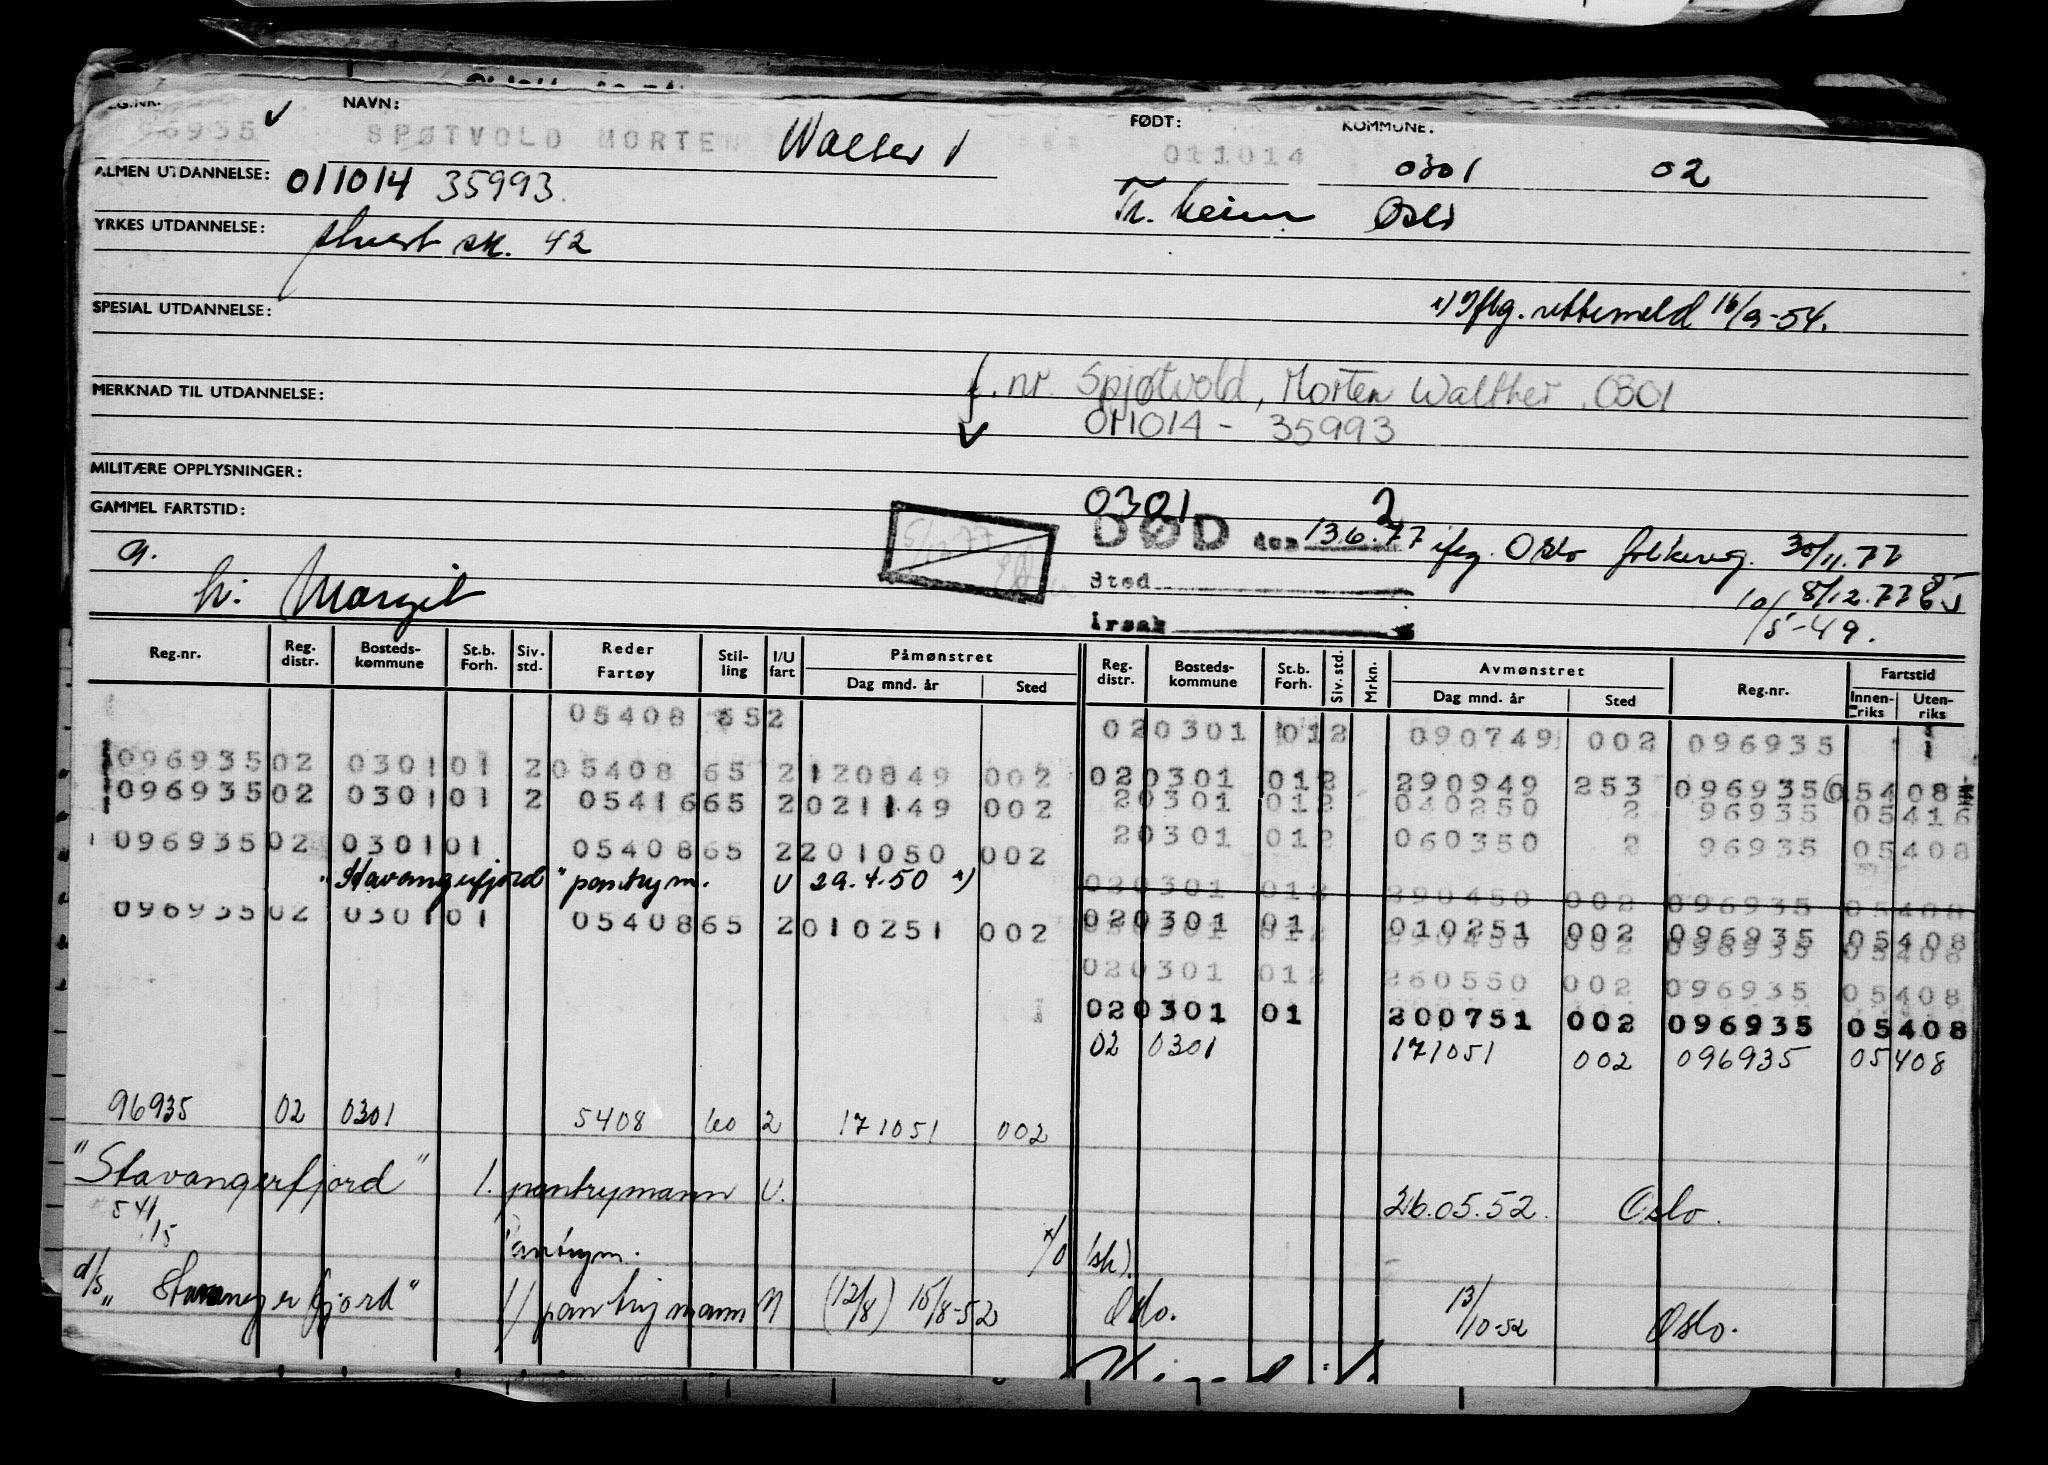 REG.NR. NAVN: FØDT: KOMMUNE:
96935 SPØTVOLD MORTEN Walter 011014 0301 02
ALMEN UTDANNELSE: 011014 35993 Tr.heim Oslo
YRKES UTDANNELSE: stuert sk. 42
SPESIAL UTDANNELSE: x) Iflg. rettemeld 16/9-54.
MERKNAD TIL UTDANNELSE: f. nr. Spjøtvold, Morten Walther, 0301
011014 - 35993
MILITÆRE OPPLYSNINGER:
GAMMEL FARTSTID: 0301 2
DØD den 13.6.77 iflg. Oslo folkereg. 30/11.77
g. Sted 8/12.77
h: Margit Årsak 10/5-49.
Reg.nr. Reg. distr. Bosteds-kommune St.b. Forh. Siv. std. Reder Fartøy Stil-ling I/U fart Påmønstret Dag mnd. år Sted Reg. distr. Bosteds-kommune St.b. Forh. Siv. std. Mrkn. Avmønstret Dag mnd. år Sted Reg.nr. Fartstid Innen-riks Uten-riks
05408 652 020301 012 090749 002 096935
096935 02 0301 01 2 05408 65 2 120849 002 020301 012 290949 253 096935 05408
096935 02 0301 01 2 05416 65 2 021149 002 20301 012 040250 2 96935 05416
096935 02 0301 01 05408 65 2 201050 002 20301 012 060350 2 96935 05408
"Stavangerfjord" pantrym. U 29.4.50 x) 020301 012 290450 002 096935 05408
096935 02 0301 01 05408 65 2 010251 002 020301 01 010251 002 096935 05408
020301 012 260550 002 096935 05408
020301 01 200751 002 096935 05408
02 0301 171051 002 096935 05408
96935 02 0301 5408 60 2 171051 002
"Stavangerfjord" 1. pantrymann U. 26.05.52. Oslo.
54/15 Pantrym. (sk).
d/s "Stavangerfjord" 1) pantrymann U (12/8) 15/8-52 Oslo. 13/10-52 Oslo.